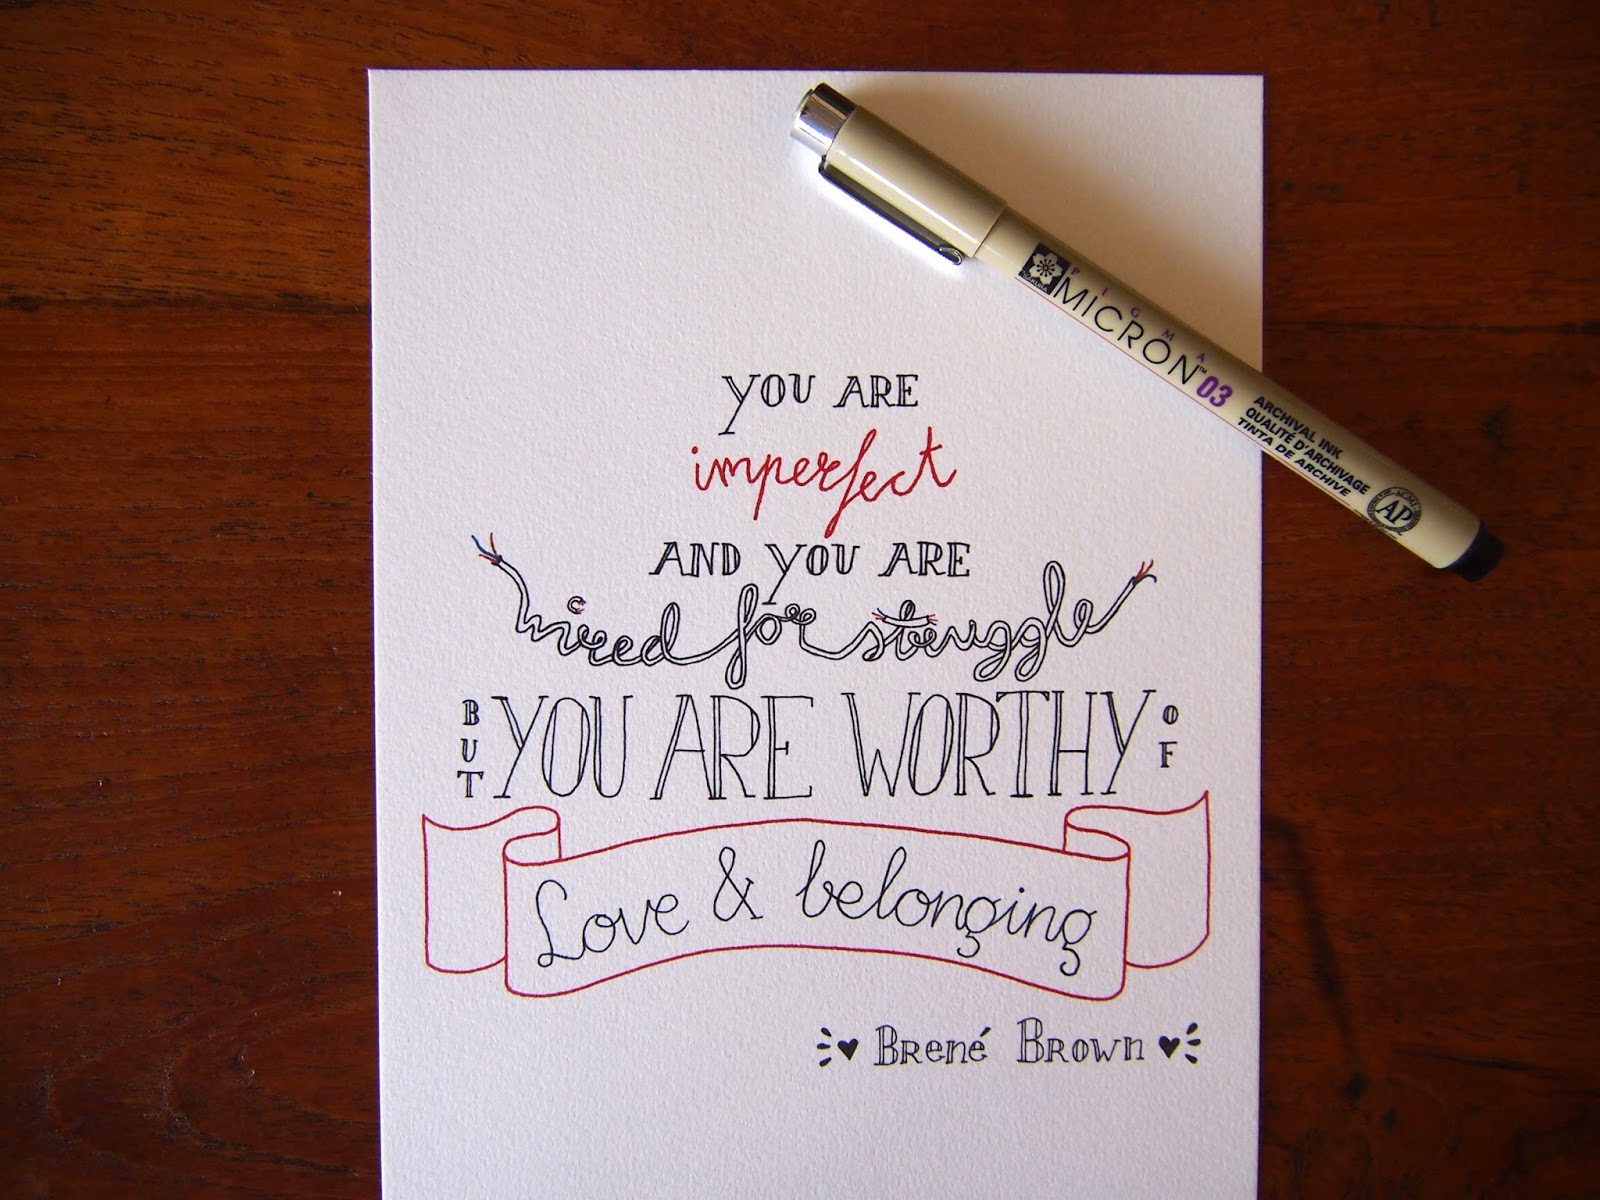 YOU ARE
imperfect
AND YOU ARE
wired for struggle
BUT YOU ARE WORTHY OF
Love & belonging
BRENÉ BROWN
PIGMA
MICRON™ 03
ARCHIVAL INK
QUALITÉ D'ARCHIVAGE
TINTA DE ARCHIVE
ACMI
AP